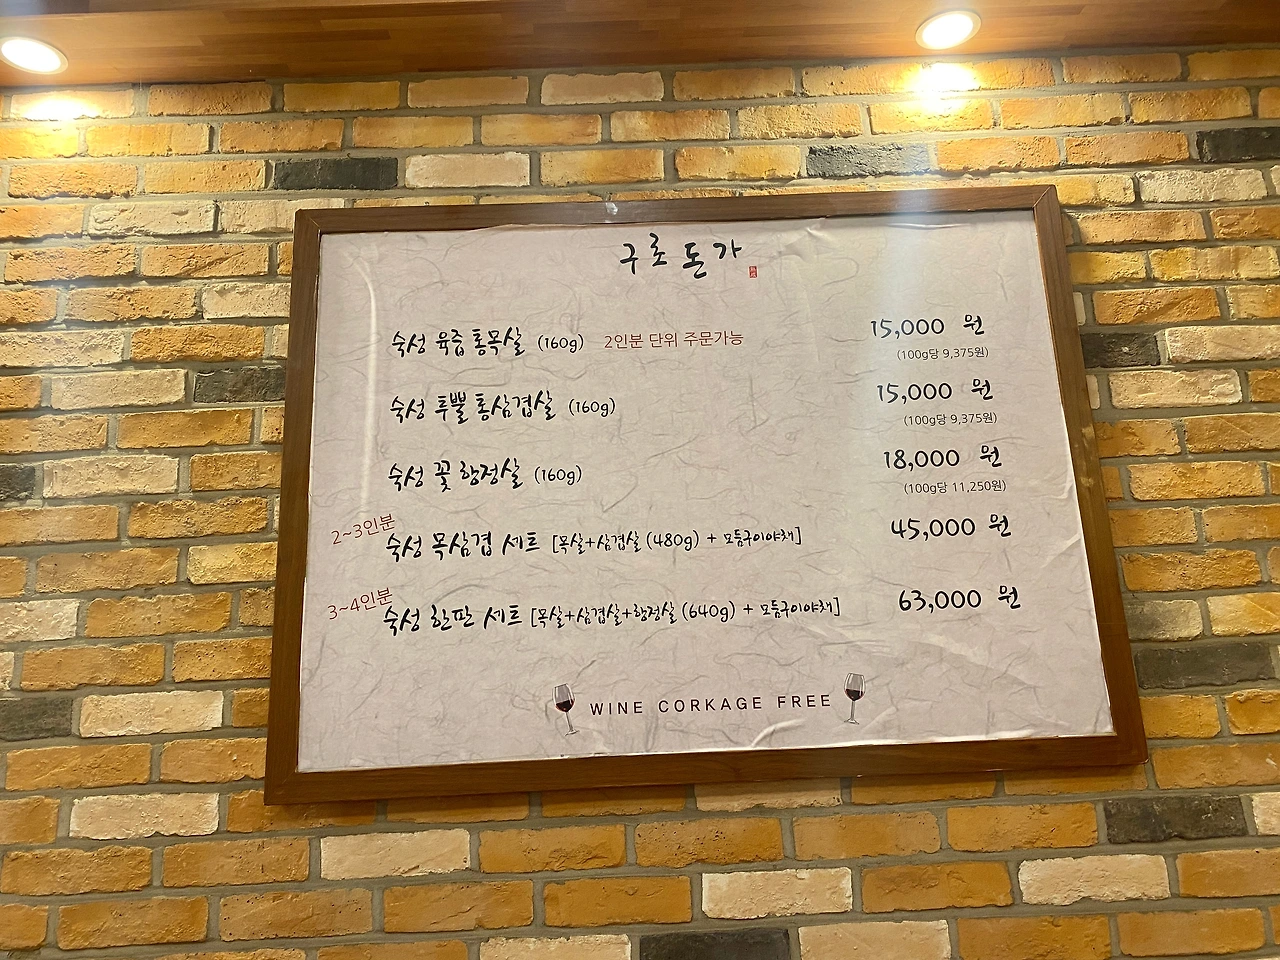 구로돈가
숙성 육즙 통목살 (160g) 2인분 단위 주문가능 15,000 원
(100g당 9,375원)
숙성 투뿔 통삼겹살 (160g) 15,000 원
(100g당 9,375원)
숙성 꽃 항정살 (160g) 18,000 원
(100g당 11,250원)
2~3인분
숙성 목삼겹 세트 [목살+삼겹살 (480g) + 모듬구이야채] 45,000 원
3~4인분
숙성 한판 세트 [목살+삼겹살+항정살 (640g) + 모듬구이야채] 63,000 원
WINE CORKAGE FREE